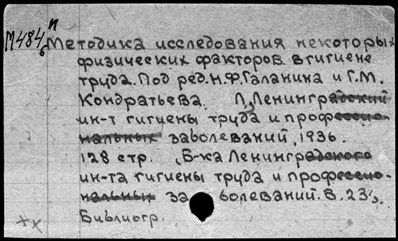 М484 п
б
Методика исследования некоторых
физических факторов в гигиене
труда. Под ред. Н.Ф. Галанина и Г.М.
Кондратьева. Л., Ленинградский
ин-т гигиены труда и профессио-
нальных заболеваний, 1936.
128 стр. (Б-ка Ленинградского
ин-та гигиены труда и профессио-
нальных заболеваний. В. 23).
Библиогр.